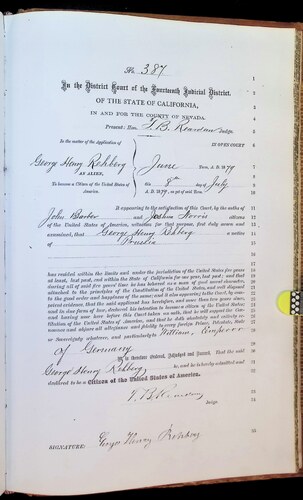 No. 387
In the District Court of the Fourteenth Judicial District.
OF THE STATE OF CALIFORNIA,
IN AND FOR THE COUNTY OF NEVADA.
Present: Hon. T. B. Reardan Judge.
In the matter of the Application of
IN OPEN COURT
George Henry Rehberg
AN ALIEN,
June Term, A. D. 1879
To become a Citizen of the United States of America.
this 8th day of July
A. D. 1879
It appearing to the satisfaction of this Court, by the oaths of
John Barber and Joshua Norris citizens
of the United States of America, witnesses for that purpose, first duly sworn and
examined, that George Henry Rehberg a native
of Prussia
has resided within the limits and under the jurisdiction of the United States five years
at least, last past, and within the State of California for one year, last past; and that
during all of said five years' time he has behaved as a man of good moral character,
attached to the principles of the Constitution of the United States, and well disposed
to the good order and happiness of the same; and it also appearing to the Court, by com-
petent evidence, that the said applicant has heretofore, and more than two years since,
and in due form of law, declared his intention to become a citizen of the United States
and having now here before this Court taken an oath, that he will support the Con-
stitution of the United States of America, and that he doth absolutely and entirely re-
nounce and abjure all allegiance and fidelity to every foreign Prince, Potentate, State
or Sovereignty whatever, and particularly to William, Emperor
of Germany
It is therefore Ordered, Adjudged and Decreed, That the said
George Henry Rehberg be, and he is hereby admitted and
declared to be a Citizen of the United States of America.
T. B. Reardan
Judge
SIGNATURE: George Henry Rehberg